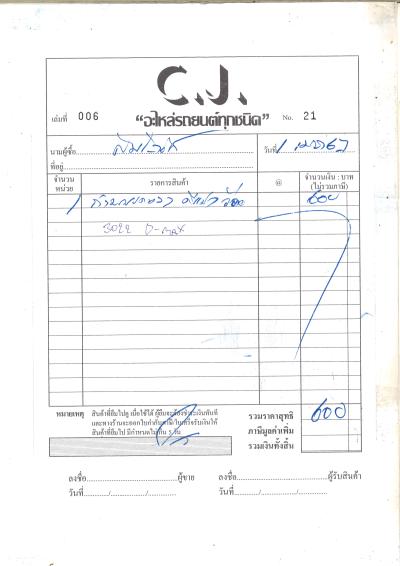 C.J.
เล่มที่ 006 “อะไหล่รถยนต์ทุกชนิด” No. 21
นามผู้ซื้อ วันที่ 1
ที่อยู่
จำนวน หน่วย รายการสินค้า @ จำนวนเงิน : บาท (ไม่รวมภาษี)
1 600
3022 D-MAX
หมายเหตุ สินค้าที่ยืมไปดู เมื่อใช้ได้ ผู้ยืมจะต้องชำระเงินทันที รวมราคาสุทธิ 600
และทางร้านจะออกใบกำกับภาษี/ใบเสร็จรับเงินให้ ภาษีมูลค่าเพิ่ม
สินค้าที่ยืมไป มีกำหนดไม่เกิน วัน รวมเงินทั้งสิ้น
ลงชื่อ ผู้ขาย ลงชื่อ ผู้รับสินค้า
วันที่ / / วันที่ / /